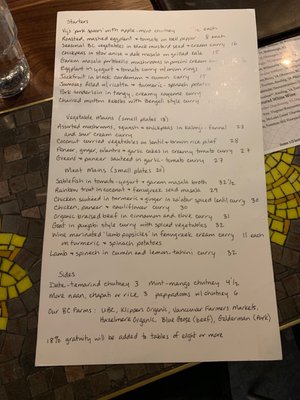 Starters
Vij's pork spears with apple-mint chutney each
Roasted, mashed eggplant & tomato on bell pepper 8 each
Seasonal BC vegetables in black mustard seed & cream curry 16
Chickpeas in star anise & date masala on grilled kale 15
Garam masala portobello mushrooms in porcini cream curry
Eggplant in yogurt & tomato curry w/ onion rings
Jackfruit in black cardamom & cumin curry 15
Samosas filled w/ ricotta & turmeric-spinach potatoes
Pork tenderloin in tangy, creamy cayenne curry
Charred mutton kebobs with Bengali style curry
Vegetable Mains (small plates 18)
Assorted mushrooms, squash & chickpeas in kalonji-fennel 28
and sour cream curry
Coconut curried vegetables on lentil & brown rice pilaf 28
Paneer, ginger, cilantro & garlic cakes in creamy tomato curry 27
Greens & paneer sauteed in garlic-tomato curry 27
Meat Mains (small plates 20)
Sablefish in tomato-yogurt & garam masala broth 32½
Rainbow trout in coconut & fenugreek seed masala 29
Chicken sauteed in turmeric & ginger in Zinfar spiced lentil curry 30
Chicken, paneer & cauliflower curry 30
Organic braised beef in cinnamon and clove curry 31
Goat in punjabi style curry with spiced vegetables 32
Wine marinated lamb popsicles in fenugreek cream curry 11 each
on turmeric & spinach potatoes
Lamb & spinach in cumin and lemon-tahini curry 32
Sides
Date-tamarind chutney 3 Mint-mango chutney 4½
More naan, chapati or rice, 3 pappadoms w/ chutney 6
Our BC Farms: UBC, Klippers Organic, Vancouver Farmers Markets,
Hazelmere Organic, Blue Goose (beef), Gelderman (Pork)
18% gratuity will be added to tables of eight or more